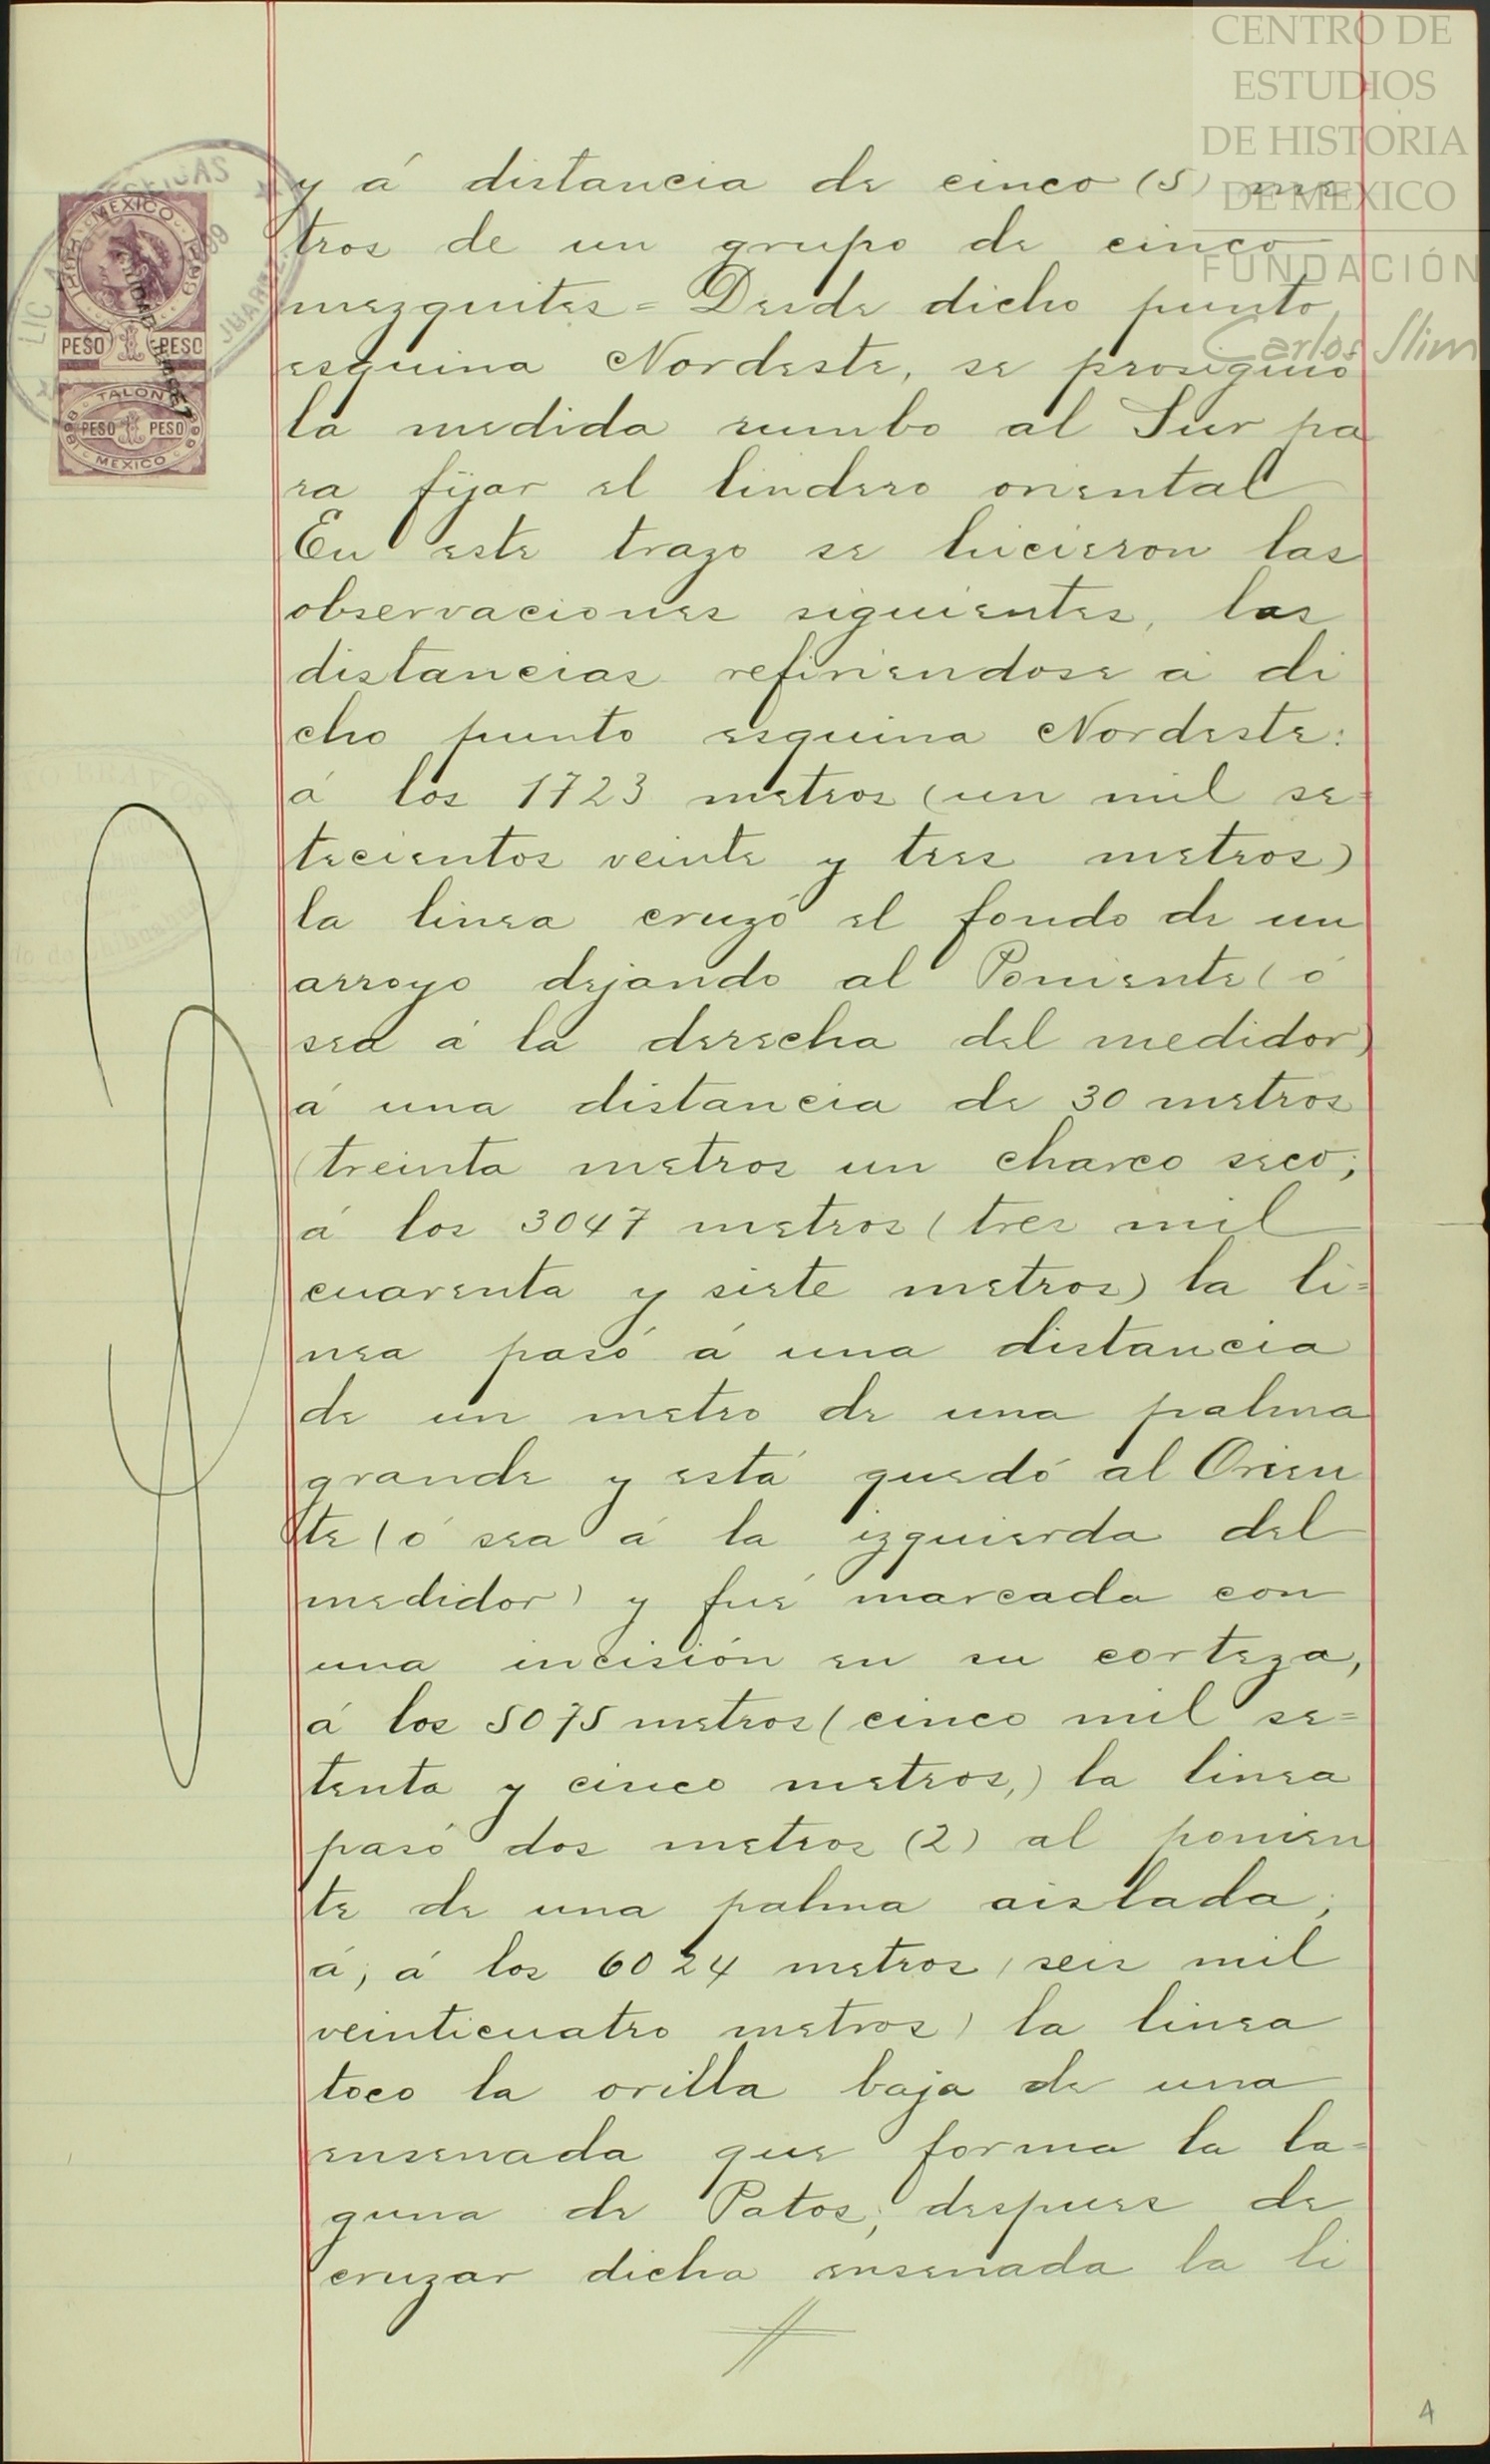 CENTRO DE
ESTUDIOS
DE HISTORIA
DE MEXICO
FUNDACIÓN
Carlos Slim
MEXICO
PESO 1 PESO
TALON
PESO 1 PESO
MEXICO
y á distancia de cinco (5) me
tros de un grupo de cinco
mezquites = Desde dicho punto
esquina Nordeste, se prosiguió
la medida rumbo al Sur pa
ra fijar el lindero oriental
En este trazo se hicieron las
observaciones siguientes, las
distancias refiriendose á di
cho punto esquina Nordeste:
á los 1723 metros (un mil se=
tecientos veinte y tres metros)
la linea cruzó el fondo de un
arroyo dejando al Poniente (ó
sea á la derecha del medidor)
á una distancia de 30 metros
(treinta metros un charco seco;
á los 3047 metros (tres mil
cuarenta y siete metros) la li=
nea pasó á una distancia
de un metro de una palma
grande y está quedó al Orien
te (ó sea á la izquierda del
medidor) y fué marcada con
una incisión en su corteza,
á los 5075 metros (cinco mil se=
tenta y cinco metros,) la linea
pasó dos metros (2) al ponien
te de una palma aislada;
á, á los 6024 metros (seis mil
veinticuatro metros) la linea
toco la orilla baja de una
ensenada que forma la la-
guna de Patos; despues de
cruzar dicha ensenada la li
4